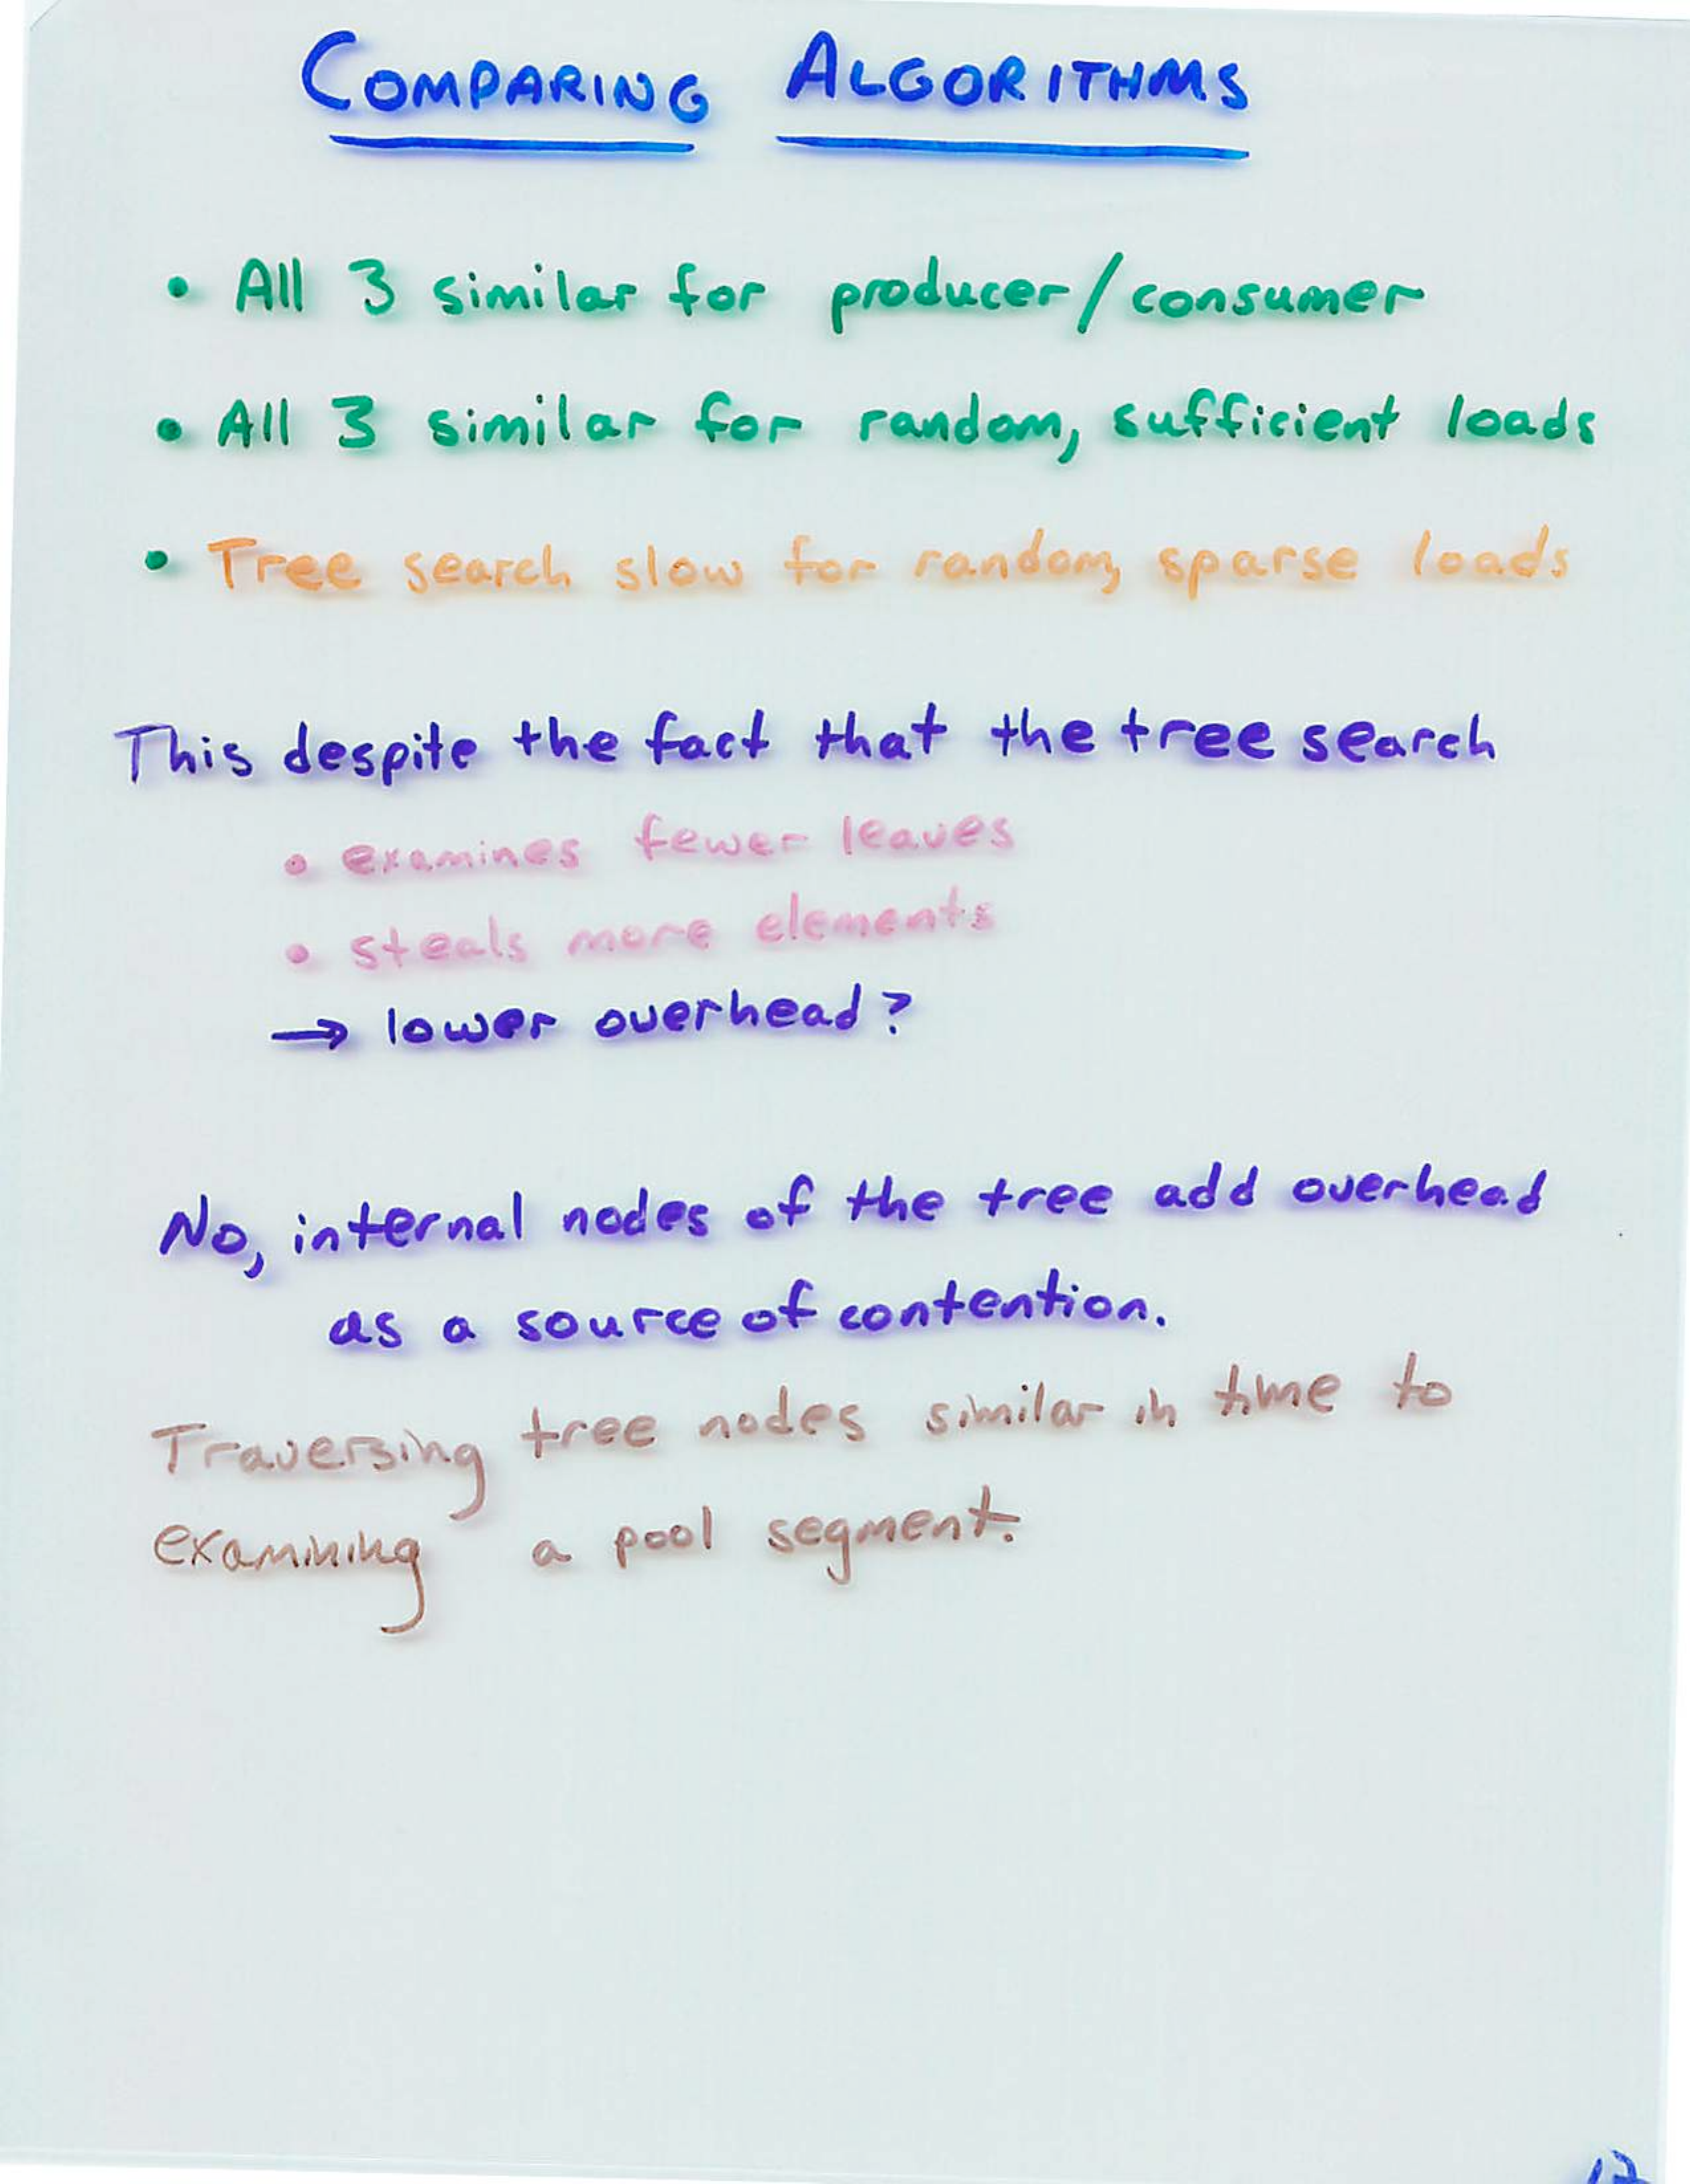 COMPARING ALGORITHMS
• All 3 similar for producer/consumer
• All 3 similar for random, sufficient loads
• Tree search slow for random, sparse loads
This despite the fact that the tree search
• examines fewer leaves
• steals more elements
→ lower overhead?
No, internal nodes of the tree add overhead
as a source of contention.
Traversing tree nodes similar in time to
examining a pool segment.